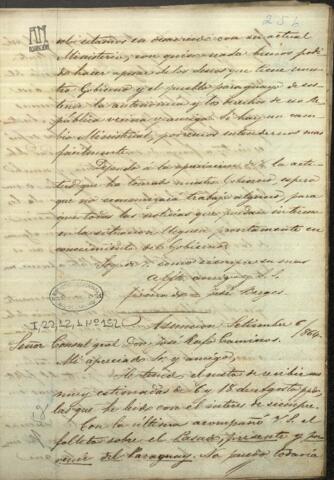 254
solicitamos en desacuerdo con su actual
Ministerio, con quien nada bueno podría
hacer apesar de los deseos que tiene nuestro
Gobierno y el pueblo paraguayo de sostener
la autonomia y los derechos de esa Re
pública vecina y amiga. Si hay un cam
bio Ministerial, podremos entendernos mas
facilmente.
Dejando á la apreciacion de V. la acti
tud que ha tomado nuestro Gobierno, espero
que no economizará trabajo alguno, para
que todas las noticias que puedan interesar
en la situacion lleguen prontamente en
conocimiento del Gobierno.
Soy de V. como siempre su mas
afto. amigo y S. S.
firmado = José Berges.
I,22,12,1 Nº 192
Asuncion Setiembre 6/864
Señor Consul gral. Don José Rufo Caminos.
Mi apreciado Sr. y amigo,
muy estimadas de 6 y 18 de Agosto pdo.
las que he leido con el interes de siempre.
Con la última acompañó V. S. el
folleto sobre el Pasado, presente y por
venir del Paraguay. No puedo todavia